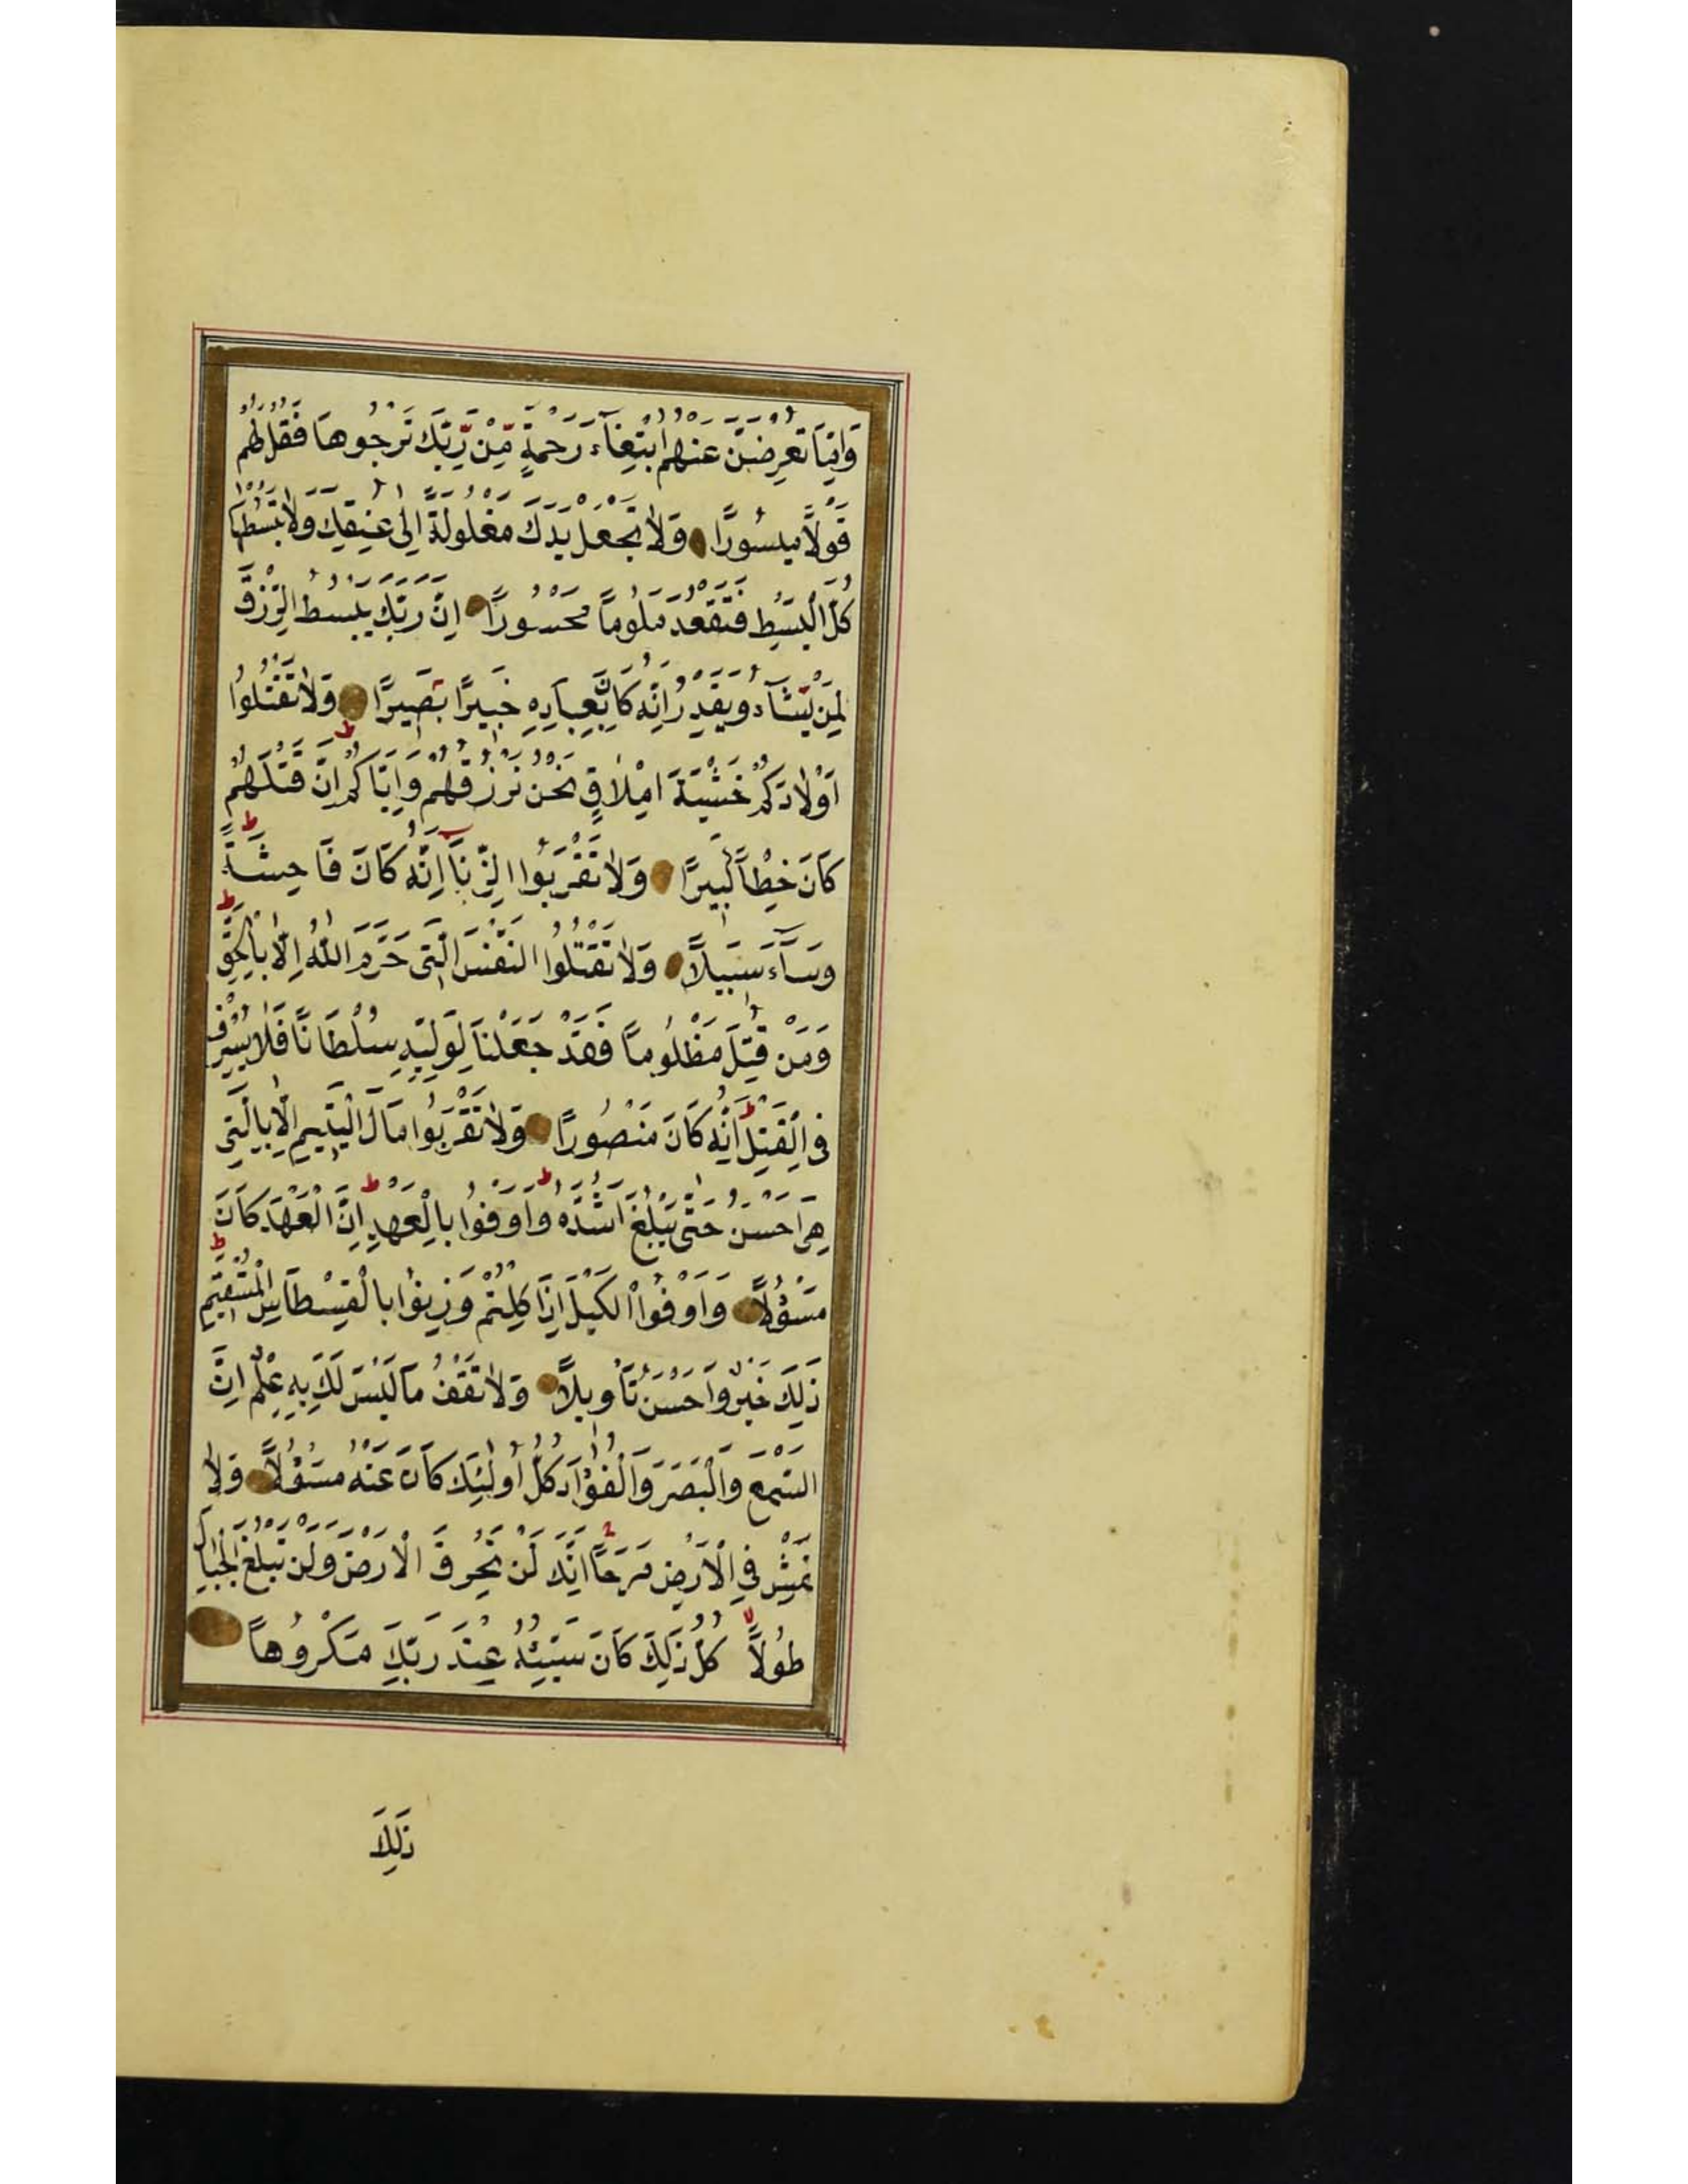 وَاِمَّا تُعْرِضَنَّ عَنْهُمُ ابْتِغَآءَ رَحْمَةٍ مِّنْ رَّبِّكَ تَرْجُوهَا فَقُلْ لَهُمْ
قَوْلًا مَيْسُورًا وَلَا تَجْعَلْ يَدَكَ مَغْلُولَةً اِلٰى عُنُقِكَ وَلَا تَبْسُطْهَا
كُلَّ الْبَسْطِ فَتَقْعُدَ مَلُومًا مَحْسُورًا اِنَّ رَبَّكَ يَبْسُطُ الرِّزْقَ
لِمَنْ يَّشَآءُ وَيَقْدِرُ اِنَّهُ كَانَ بِعِبَادِهِ خَبِيرًا بَصِيرًا وَلَا تَقْتُلُوا
اَوْلَادَكُمْ خَشْيَةَ اِمْلَاقٍ نَحْنُ نَرْزُقُهُمْ وَاِيَّاكُمْ اِنَّ قَتْلَهُمْ
كَانَ خِطْأً كَبِيرًا وَلَا تَقْرَبُوا الزِّنَا اِنَّهُ كَانَ فَاحِشَةً
وَسَآءَ سَبِيلًا وَلَا تَقْتُلُوا النَّفْسَ الَّتِى حَرَّمَ اللّٰهُ اِلَّا بِالْحَقِّ
وَمَنْ قُتِلَ مَظْلُومًا فَقَدْ جَعَلْنَا لِوَلِيِّهِ سُلْطَانًا فَلَا يُسْرِفْ
فِى الْقَتْلِ اِنَّهُ كَانَ مَنْصُورًا وَلَا تَقْرَبُوا مَالَ الْيَتِيمِ اِلَّا بِالَّتِى
هِىَ اَحْسَنُ حَتّٰى يَبْلُغَ اَشُدَّهُ وَاَوْفُوا بِالْعَهْدِ اِنَّ الْعَهْدَ كَانَ
مَسْؤُلًا وَاَوْفُوا الْكَيْلَ اِذَا كِلْتُمْ وَزِنُوا بِالْقِسْطَاسِ الْمُسْتَقِيمِ
ذٰلِكَ خَيْرٌ وَاَحْسَنُ تَأْوِيلًا وَلَا تَقْفُ مَا لَيْسَ لَكَ بِهِ عِلْمٌ اِنَّ
السَّمْعَ وَالْبَصَرَ وَالْفُؤَادَ كُلُّ اُولٰئِكَ كَانَ عَنْهُ مَسْؤُلًا وَلَا
تَمْشِ فِى الْاَرْضِ مَرَحًا اِنَّكَ لَنْ تَخْرِقَ الْاَرْضَ وَلَنْ تَبْلُغَ الْجِبَالَ
طُولًا كُلُّ ذٰلِكَ كَانَ سَيِّئُهُ عِنْدَ رَبِّكَ مَكْرُوهًا
ذٰلِكَ